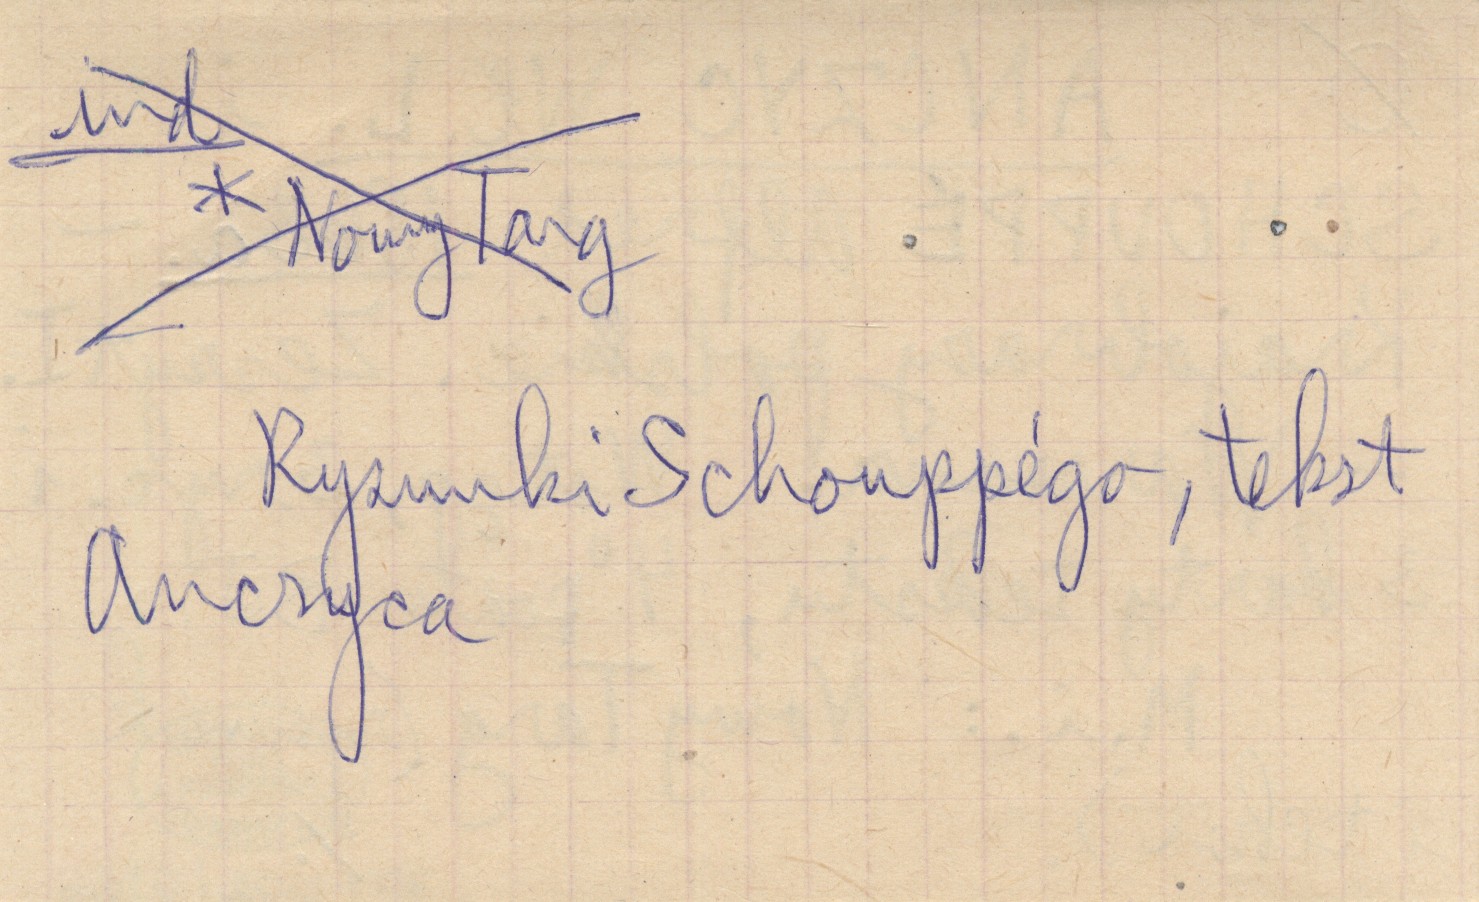 ind
* Nowy Targ
Rysunki Schouppégo, tekst
Anczyca